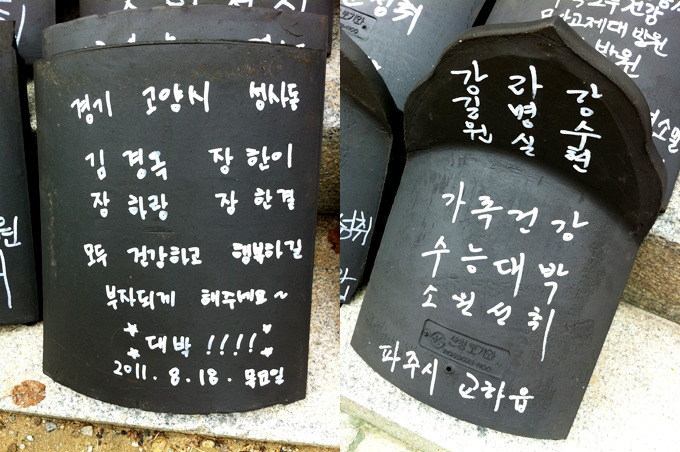 경기 고양시 성사동
김경옥 장한이
장하랑 장한결
모두 건강하고 행복하길
부자되게 해주세요~
대박 !!!!
2011. 8. 18. 목요일
강길원 라명실 강수현
가족건강
수능대박
소원성취
파주시 교하읍
성취
방원